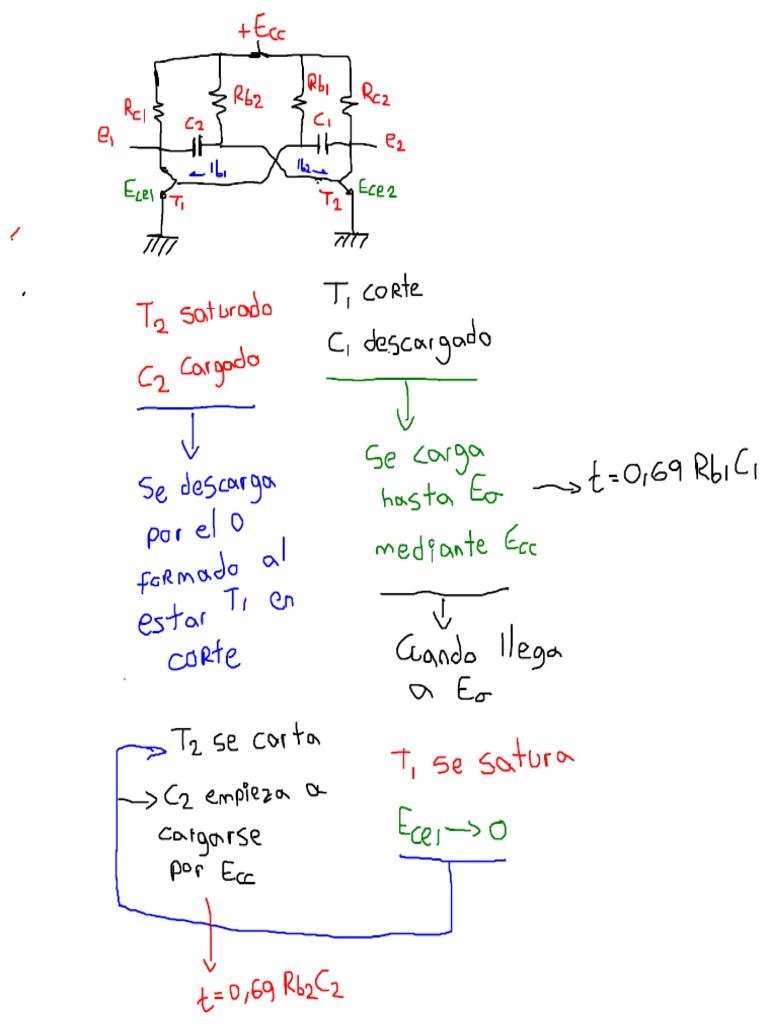 +Ecc
Rc1
Rb2
Rb1
Rc2
e1
C2
C1
e2
Ib1
Ib2
Ece1
T1
T2
Ece2
T2 saturado
C2 Cargado
Se descarga
por el 0
formado al
estar T1 en
corte
T1 corte
C1 descargado
Se carga
hasta Eσ
mediante Ecc
t=0,69 Rb1C1
Cuando llega
a Eσ
T1 se satura
Ece1→0
T2 se corta
C2 empieza a
cargarse
por Ecc
t=0,69 Rb2C2